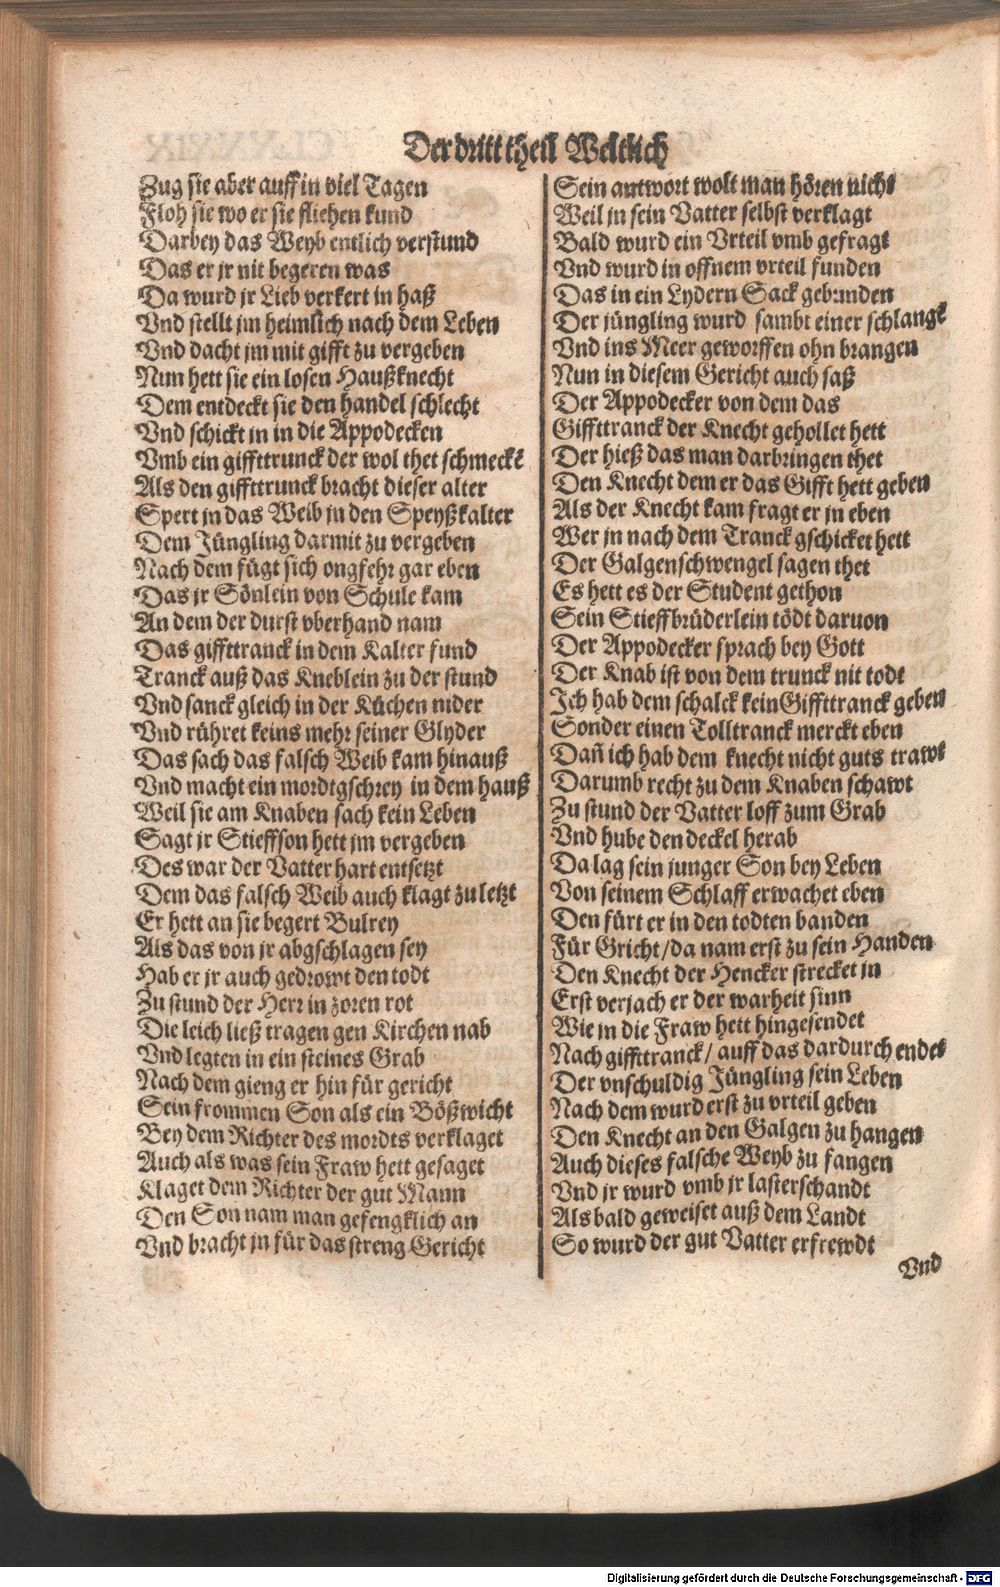 Der dritt theil Weltlich
Zug sie aber auff in viel Tagen
Floh sie wo er sie fliehen kund
Darbey das Weyb entlich verstund
Das er jr nit begeren was
Da wurd jr Lieb verkert in haß
Vnd stellt jm heimlich nach dem Leben
Vnd dacht jm mit gifft zu vergeben
Nun hett sie ein losen Haußknecht
Dem entdeckt sie den handel schlecht
Vnd schickt jn in die Appodecken
Vmb ein giffttrunck der wol thet schmeckē
Als den giffttrunck bracht dieser alter
Spert jn das Weib jn den Speyßkalter
Dem Jüngling darmit zu vergeben
Nach dem fügt sich ongfehr gar eben
Das jr Sönlein von Schule kam
An dem der durst vberhand nam
Das giffttranck in dem Kalter fund
Tranck auß das Kneblein zu der stund
Vnd sanck gleich in der Küchen nider
Vnd rühret keins mehr seiner Glyder
Das sach das falsch Weib kam hinauß
Vnd macht ein mordtgschrey in dem hauß
Weil sie am Knaben sach kein Leben
Sagt jr Stieffson hett jm vergeben
Des war der Vatter hart entsetzt
Dem das falsch Weib auch klagt zu letzt
Er hett an sie begert Bulrey
Als das von jr abgschlagen sey
Hab er jr auch gedrowt den todt
Zu stund der Herr in zoren rot
Die leich ließ tragen gen Kirchen nab
Vnd legten in ein steines Grab
Nach dem gieng er hin für gericht
Sein frommen Son als ein Bößwicht
Bey dem Richter des mordts verklaget
Auch als was sein Fraw hett gesaget
Klaget dem Richter der gut Mann
Den Son nam man gefengklich an
Vnd bracht jn für das streng Gericht
Sein antwort wolt man hören nicht
Weil jn sein Vatter selbst verklagt
Bald wurd ein Vrteil vmb gefragt
Vnd wurd in offnem vrteil funden
Das in ein Lydern Sack gebunden
Der jüngling wurd sambt einer schlangē
Vnd ins Meer geworffen ohn brangen
Nun in diesem Gericht auch saß
Der Appodecker von dem das
Giffttranck der Knecht gehollet hett
Der hieß das man darbringen thet
Den Knecht dem er das Gifft hett geben
Als der Knecht kam fragt er jn eben
Wer jn nach dem Tranck gschicket hett
Der Galgenschwengel sagen thet
Es hett es der Student gethon
Sein Stieffbrüderlein tödt daruon
Der Appodecker sprach bey Gott
Der Knab ist von dem trunck nit todt
Ich hab dem schalck kein Giffttranck geben
Sonder einen Tolltranck merckt eben
Dañ ich hab dem knecht nicht guts trawt
Darumb recht zu dem Knaben schawt
Zu stund der Vatter loff zum Grab
Vnd hube den deckel herab
Da lag sein junger Son bey Leben
Von seinem Schlaff erwachet eben
Den fürt er in den todten banden
Für Gricht/da nam erst zu sein Handen
Den Knecht der Hencker strecket jn
Erst verjach er der warheit sinn
Wie in die Fraw hett hingesendet
Nach giffttranck/ auff das dardurch endet
Der vnschuldig Jüngling sein Leben
Nach dem wurd erst zu vrteil geben
Den Knecht an den Galgen zu hangen
Auch dieses falsche Weyb zu fangen
Vnd jr wurd vmb jr lasterschandt
Als bald geweiset auß dem Landt
So wurd der gut Vatter erfrewdt
Vnd
Digitalisierung gefördert durch die Deutsche Forschungsgemeinschaft - DFG